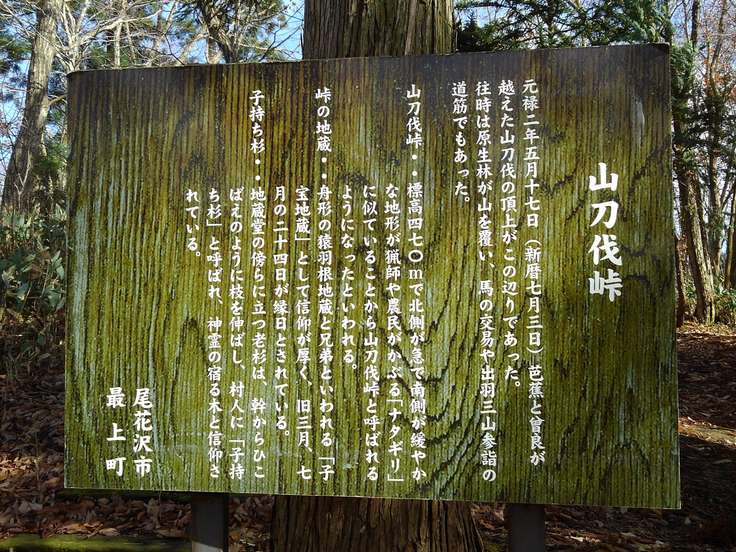 山刀伐峠
元禄二年五月十七日(新暦七月三日)芭蕉と曾良が
越えた山刀伐の頂上がこの辺りであった。
往時は原生林が山を覆い、馬の交易や出羽三山参詣の
道筋でもあった。
山刀伐峠・・標高四七〇mで北側が急で南側が緩やか
な地形が猟師や農民がかぶる「ナタギリ」
に似ていることから山刀伐峠と呼ばれる
ようになったといわれる。
峠の地蔵・・舟形の猿羽根地蔵と兄弟といわれる「子
宝地蔵」として信仰が厚く、旧三月、七
月の二十四日が縁日とされている。
子持ち杉・・地蔵堂の傍らに立つ老杉は、幹からひこ
ばえのように枝を伸ばし、村人に「子持
ち杉」と呼ばれ、神霊の宿る木と信仰さ
れている。
尾花沢市
最上町